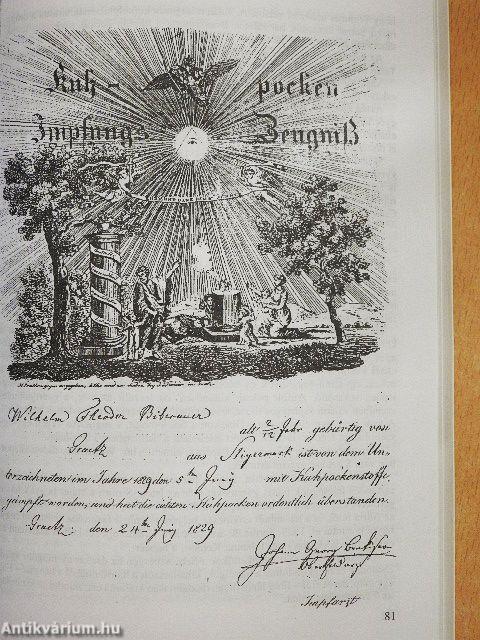 Kuh- pocken
Impfungs Zeugniß
Wilhelm Theodor Biberauer alt 2/12 Jahr gebürtig von
Graetz aus Steyermark ist von dem Un-
terzeichneten im Jahre 1829 den 5ten Juny mit Kuhpockenstoffe
geimpft worden, und hat die ächten Kuhpocken ordentlich überstanden.
Graetz den 24ten Juny 1829
Johann Georg
Impfarzt
81
Antikvárium.hu